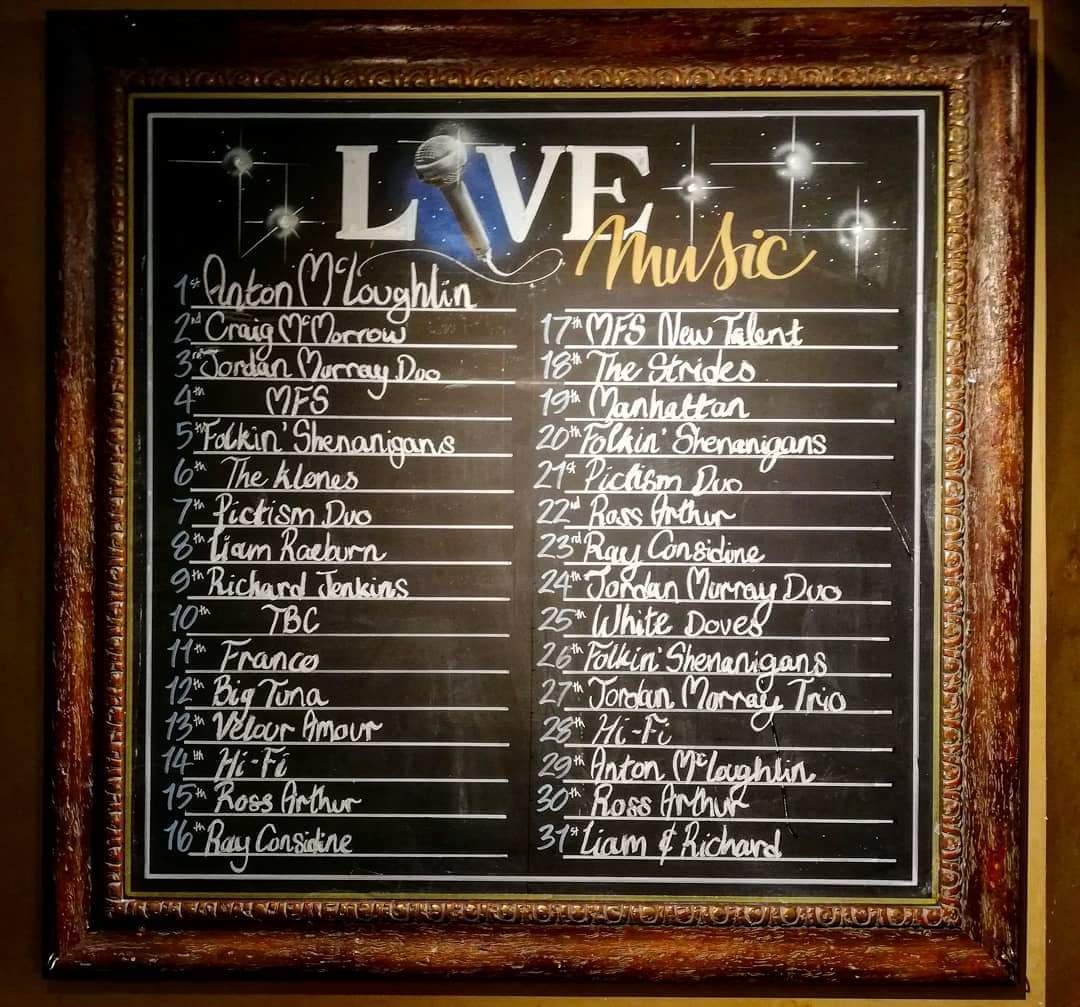 LIVE
Music
1st Anton McLoughlin
2nd Craig McMorrow
3rd Jordan Murray Duo
4th MFS
5th Folkin' Shenanigans
6th The Klones
7th Pictism Duo
8th Liam Raeburn
9th Richard Jenkins
10th TBC
11th Franco
12th Big Tuna
13th Velour Amour
14th Hi-Fi
15th Ross Arthur
16th Ray Considine
17th MFS New Talent
18th The Strides
19th Manhattan
20th Folkin' Shenanigans
21st Pictism Duo
22nd Ross Arthur
23rd Ray Considine
24th Jordan Murray Duo
25th White Doves
26th Folkin' Shenanigans
27th Jordan Murray Trio
28th Hi-Fi
29th Anton McLoughlin
30th Ross Arthur
31st Liam & Richard